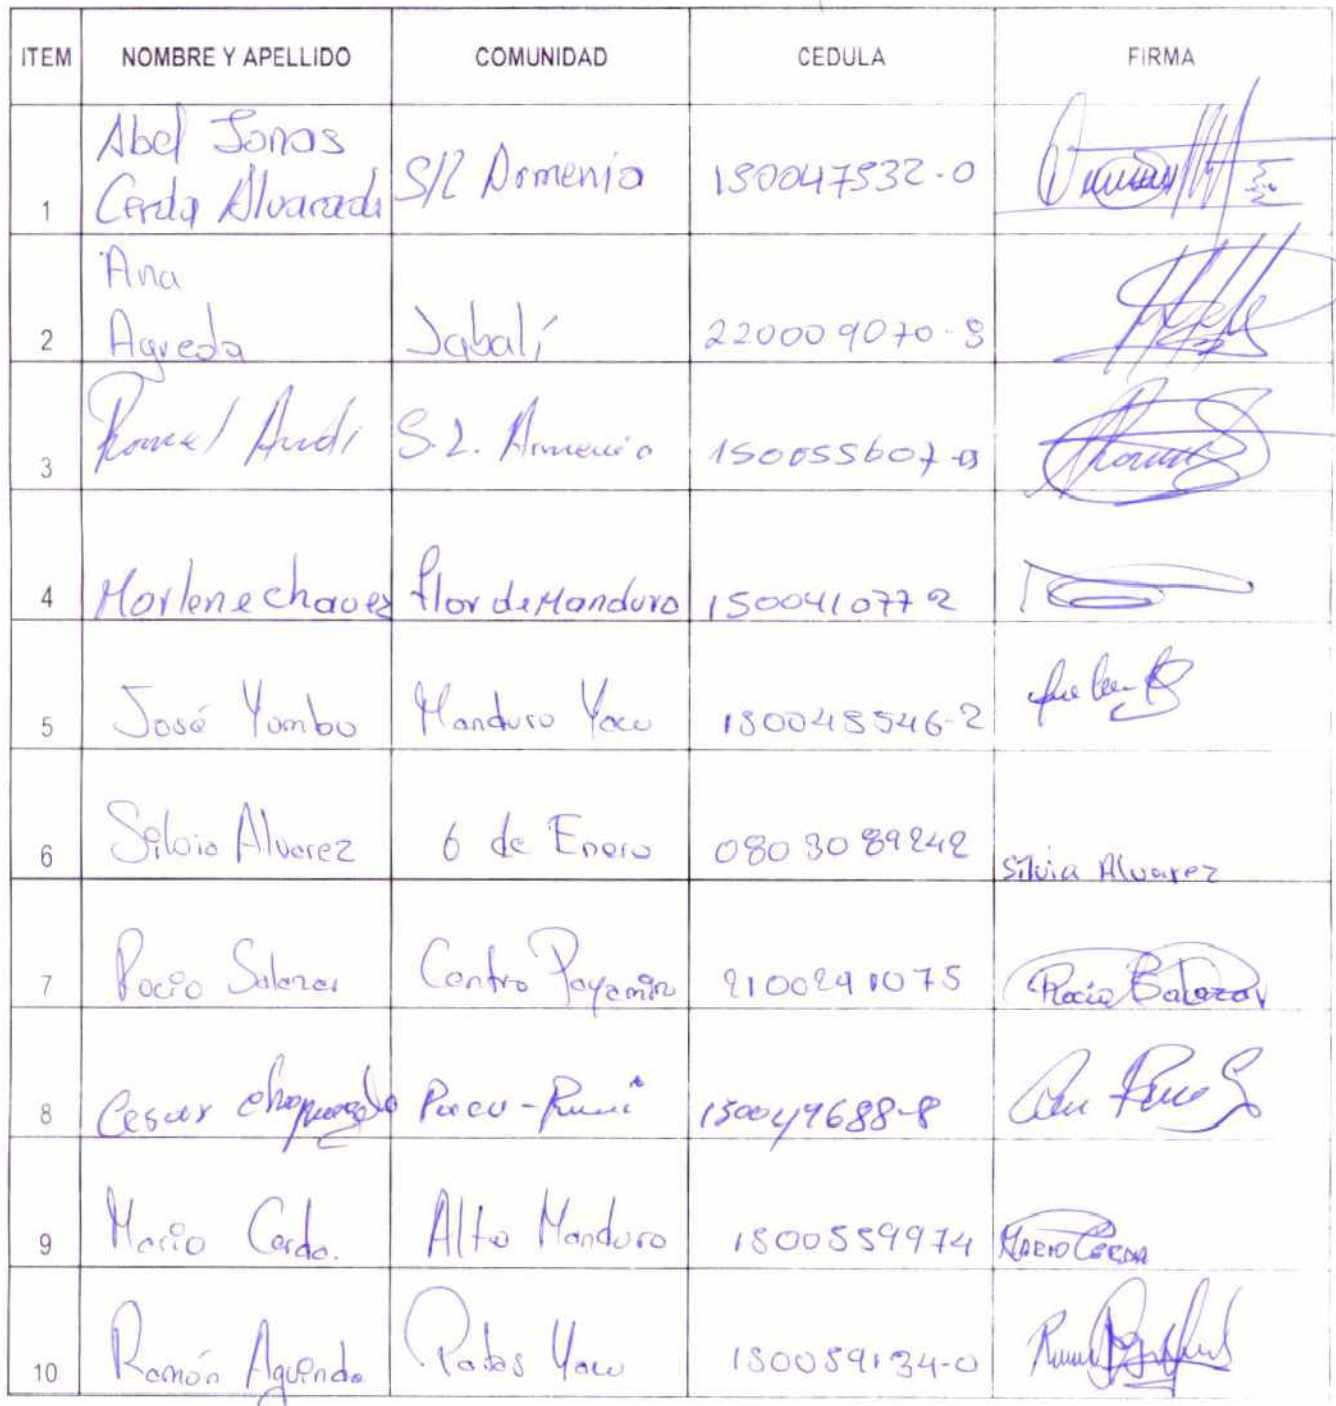 ITEM NOMBRE Y APELLIDO COMUNIDAD CEDULA FIRMA
Abel Jonas
1 Cerda Alvarado S/2 Armenia 150047532-0
Ana
2 Agreda Jabalí 220009070-5
3 Romel Andi S.2. Armenia 150055607-
4 Marlene chavez flor de Manduro 1500410772
5 José Yumbo Manduro Yacu 150045546-2
6 Silvia Alvarez 6 de Enero 0803089242 Silvia Alvarez
7 Rocio Salazar Centro Payamin 2100291075 Rocio Salazar
8 Cesar Pucu-Rumi 150049688-8
9 Mario Cerda. Alto Manduro 1500559974 MARIO CERDA
10 Ramón Aguinda Patas Yacu 150059134-0